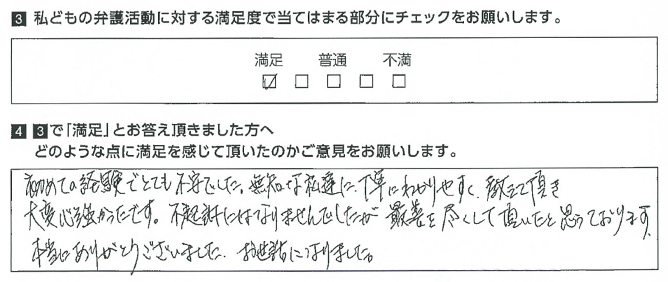 3 私どもの弁護活動に対する満足度で当てはまる部分にチェックをお願いします。
満足 普通 不満
☑ □ □ □ □
4 3で「満足」とお答え頂きました方へ
どのような点に満足を感じて頂いたのかご意見をお願いします。
初めての経験でとても不安でした。無知な私達に、丁寧にわかりやすく、教えて頂き
大変心強かったです。不起訴にはなりませんでしたが 最善を尽くして頂いたと思っております。
本当にありがとうございました。お世話になりました。